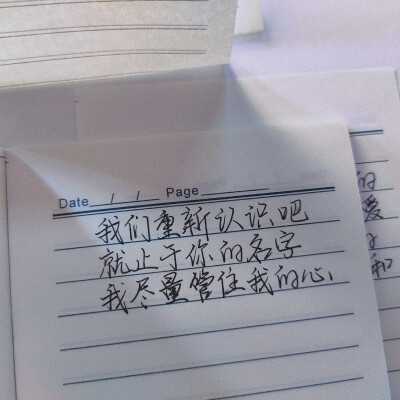 Date / / Page
我们重新认识吧
就止于你的名字
我尽量管住我的心
的
爱
和